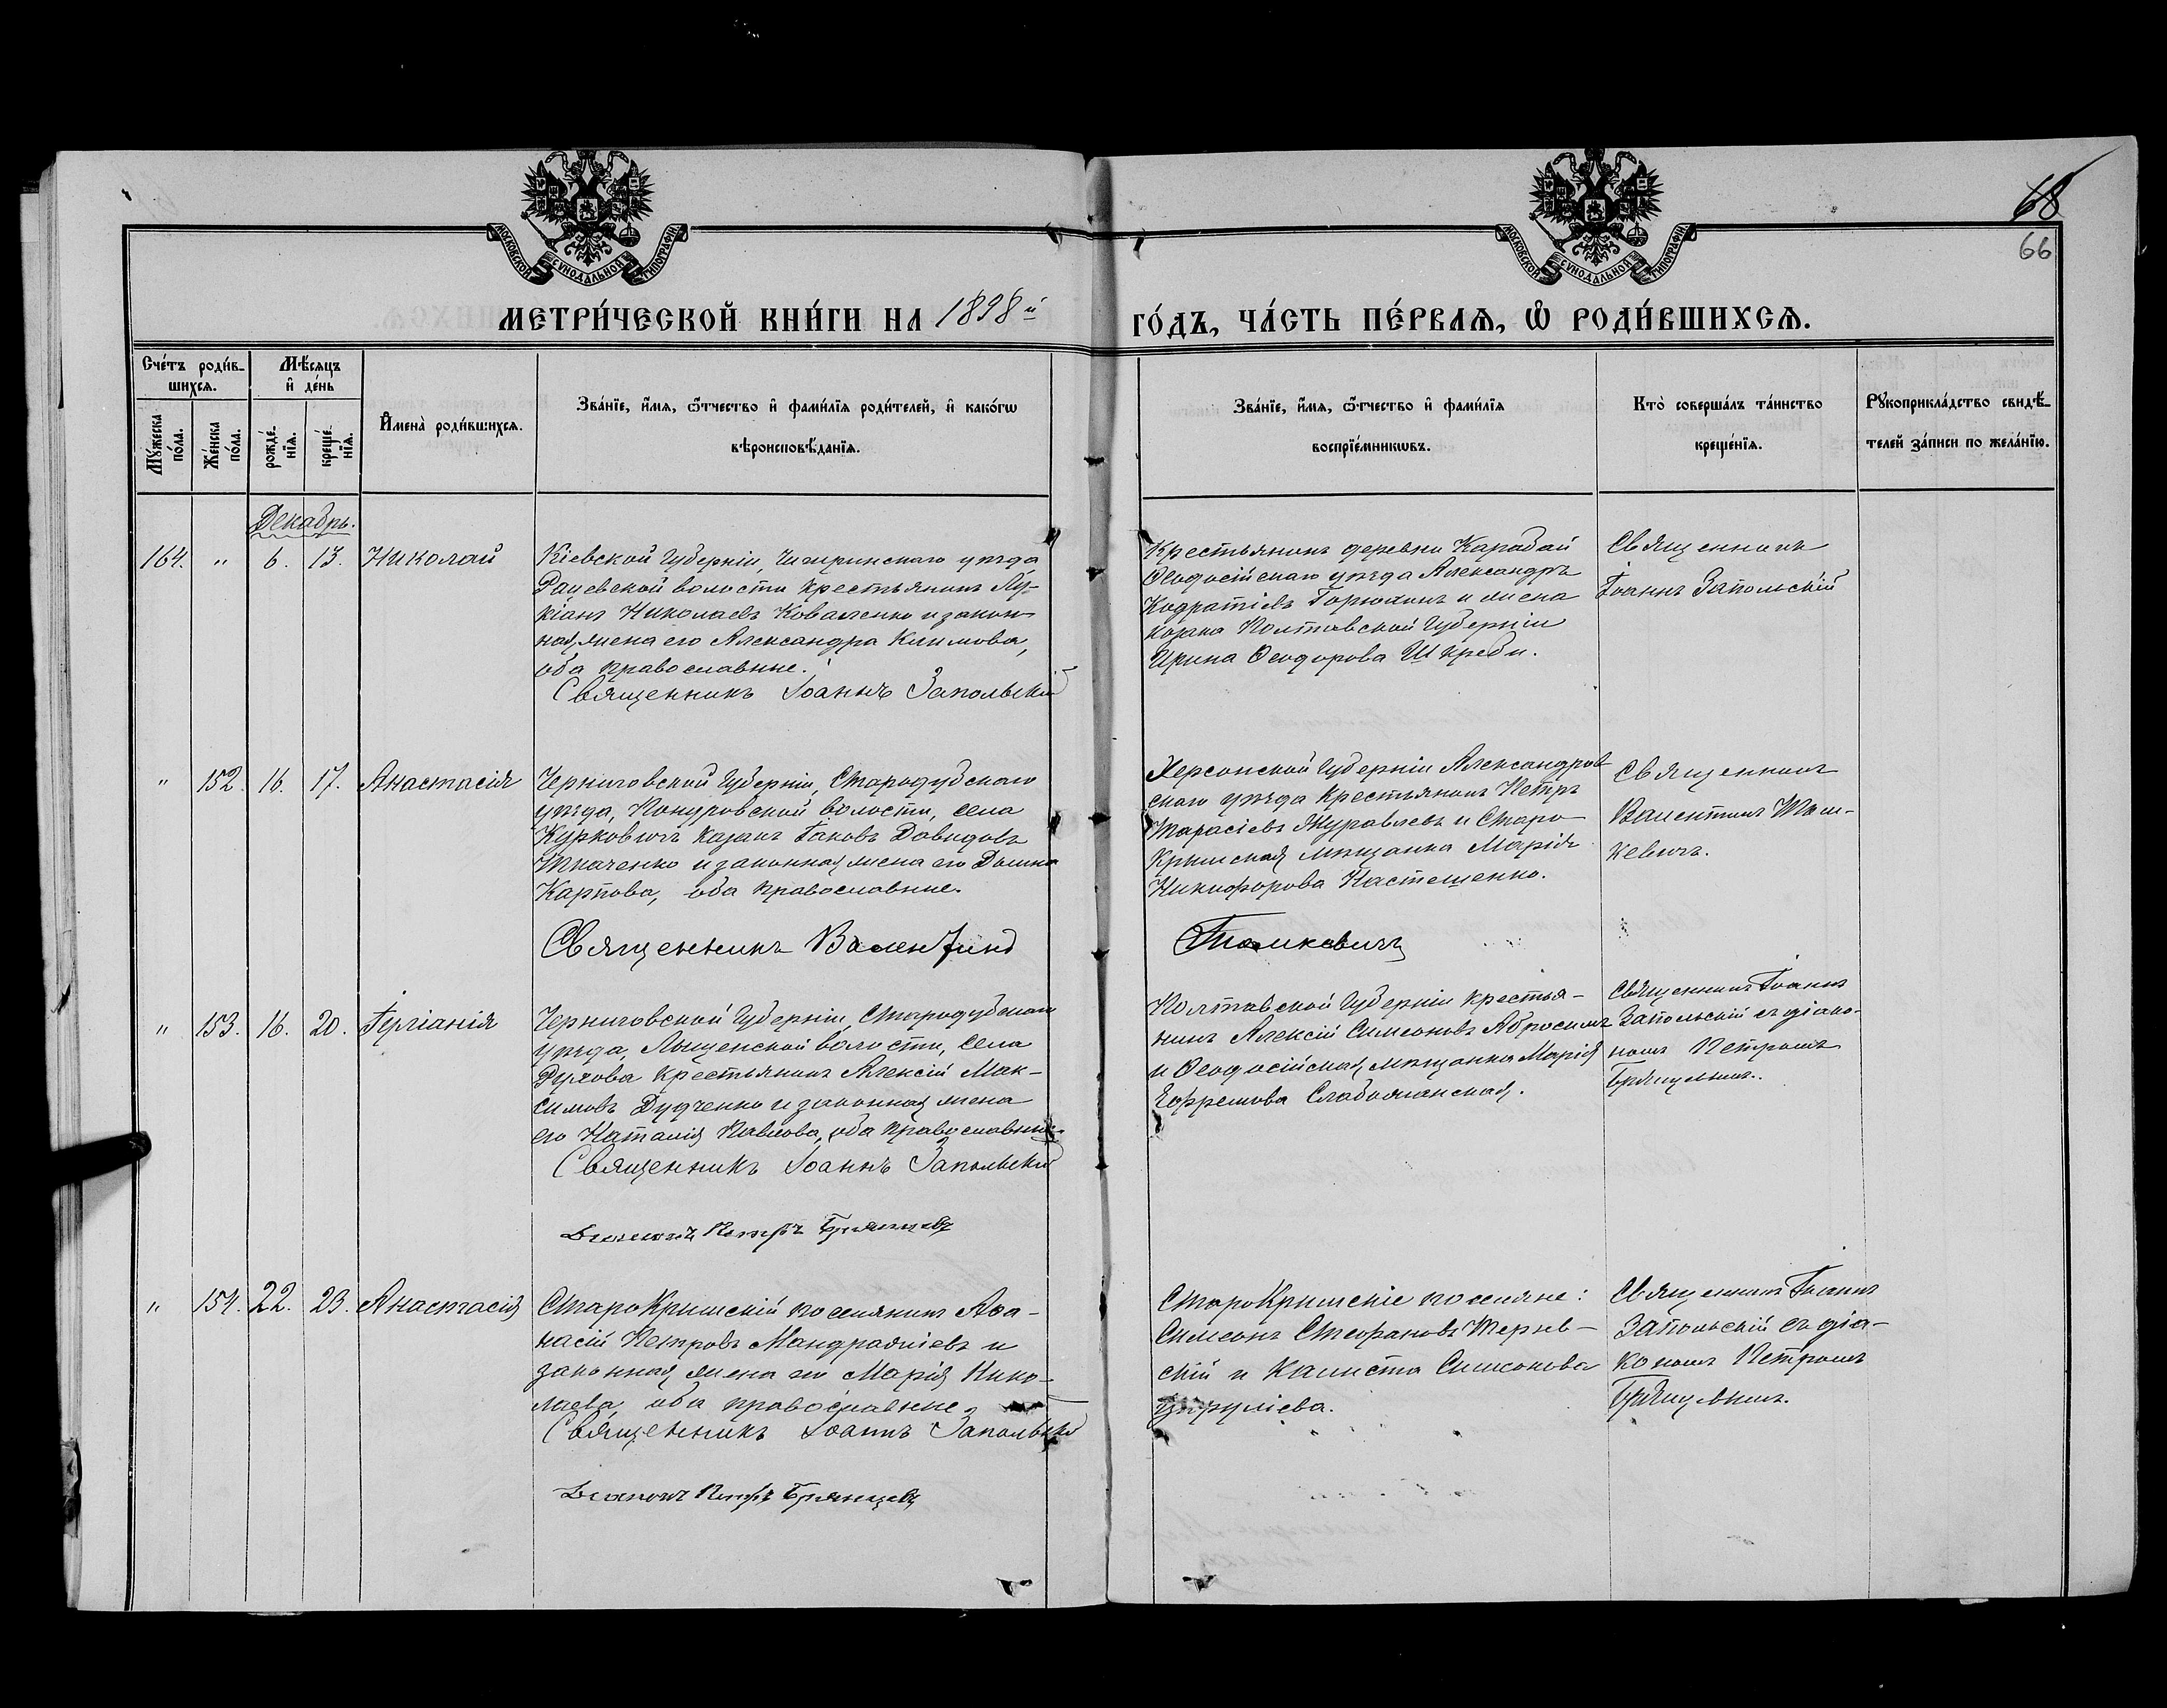 68
66
МОСКОВСКОЙ СѴНОДАЛЬНОЙ ТИПОГРАФІИ
МОСКОВСКОЙ СѴНОДАЛЬНОЙ ТИПОГРАФІИ
МЕТРИ́ЧЕСКОЙ КНИ́ГИ НА 1898й
ГО́ДЪ, ЧА́СТЬ ПЕ́РВАѦ, Ѽ РОДИ́ВШИХСѦ.
Сче́тъ роди́в-
шихсѧ.
Мѣ́сѧцъ
и҆ де́нь
Мꙋ́жеска
по́ла.
Же́нска
по́ла.
рожде́-
нїѧ.
креще́-
нїѧ.
И҆мена̀ роди́вшихсѧ.
Зва́нїе, и҆́мѧ, ѻ҆́тчество и҆ фами́лїѧ роди́телей, и҆ како́гѡ
вѣроисповѣ́данїѧ.
Зва́нїе, и҆́мѧ, ѻ҆́тчество и҆ фами́лїѧ
воспрїе́мникѡвъ.
Кто̀ соверша́лъ та́инство
креще́нїѧ.
Рꙋкоприкла́дство свидѣ́-
телей за́писи по жела́нїю.
Декабрь.
164. " 6. 13. Николай
Кіевской Губерніи, Чигиринскаго уѣзда
волости крестьянинъ Лу-
кіанъ Николаевъ Коваленко и закон-
ная жена его Александра Климова,
оба православные.
Священникъ Іоаннъ Запольскій
Крестьянинъ деревни Карабай
Ѳеодосійскаго уѣзда Александръ
Кодратіевъ Горюхинъ и жена
козака Полтавской Губерніи
Ирина Ѳеодорова
Священникъ
Іоаннъ Запольскій
" 152. 16. 17. Анастасія
Черниговской Губерніи, Стародубскаго
уѣзда, Понуровской волости, села
Курковичъ казакъ Іаковъ Давидовъ
Ткаченко и законная жена его Домна
Карпова, оба православные.
Священникъ Валентинъ
Томкевичъ
Херсонской Губерніи Александров-
скаго уѣзда крестьянинъ Петръ
Тарасіевъ Журавлевъ и Старо-
Крымская мѣщанка Марія
Никифорова
Священникъ
Валентинъ Том-
кевичъ.
" 153. 16. 20. Іуліанія
Черниговской Губерніи, Стародубскаго
уѣзда, Лыщенской волости, села
Духова крестьянинъ Алексій Мак-
симовъ Дудченко и законная жена
его Наталія Павлова, оба православные.
Священникъ Іоаннъ Запольскій
Діаконъ Петръ
Полтавской Губерніи крестья-
нинъ Алексій Симеоновъ Абросим
и Ѳеодосійская мѣщанка Марія
Ефремова
Священникъ Іоаннъ
Запольскій съ діако-
номъ Петромъ
" 154. 22. 23. Анастасія
СтароКрымскій поселянинъ Аѳа-
насій Петровъ и
законная жена его Марія Нико-
лаева, оба православные.
Священникъ Іоаннъ Запольскій
Діаконъ Петръ
СтароКрымскіе поселяне:
Симеонъ Стефановъ Терзев-
скій и Калиста Симеонова
Цирулiева.
Священникъ Іоаннъ
Запольскій съ діа-
кономъ Петромъ